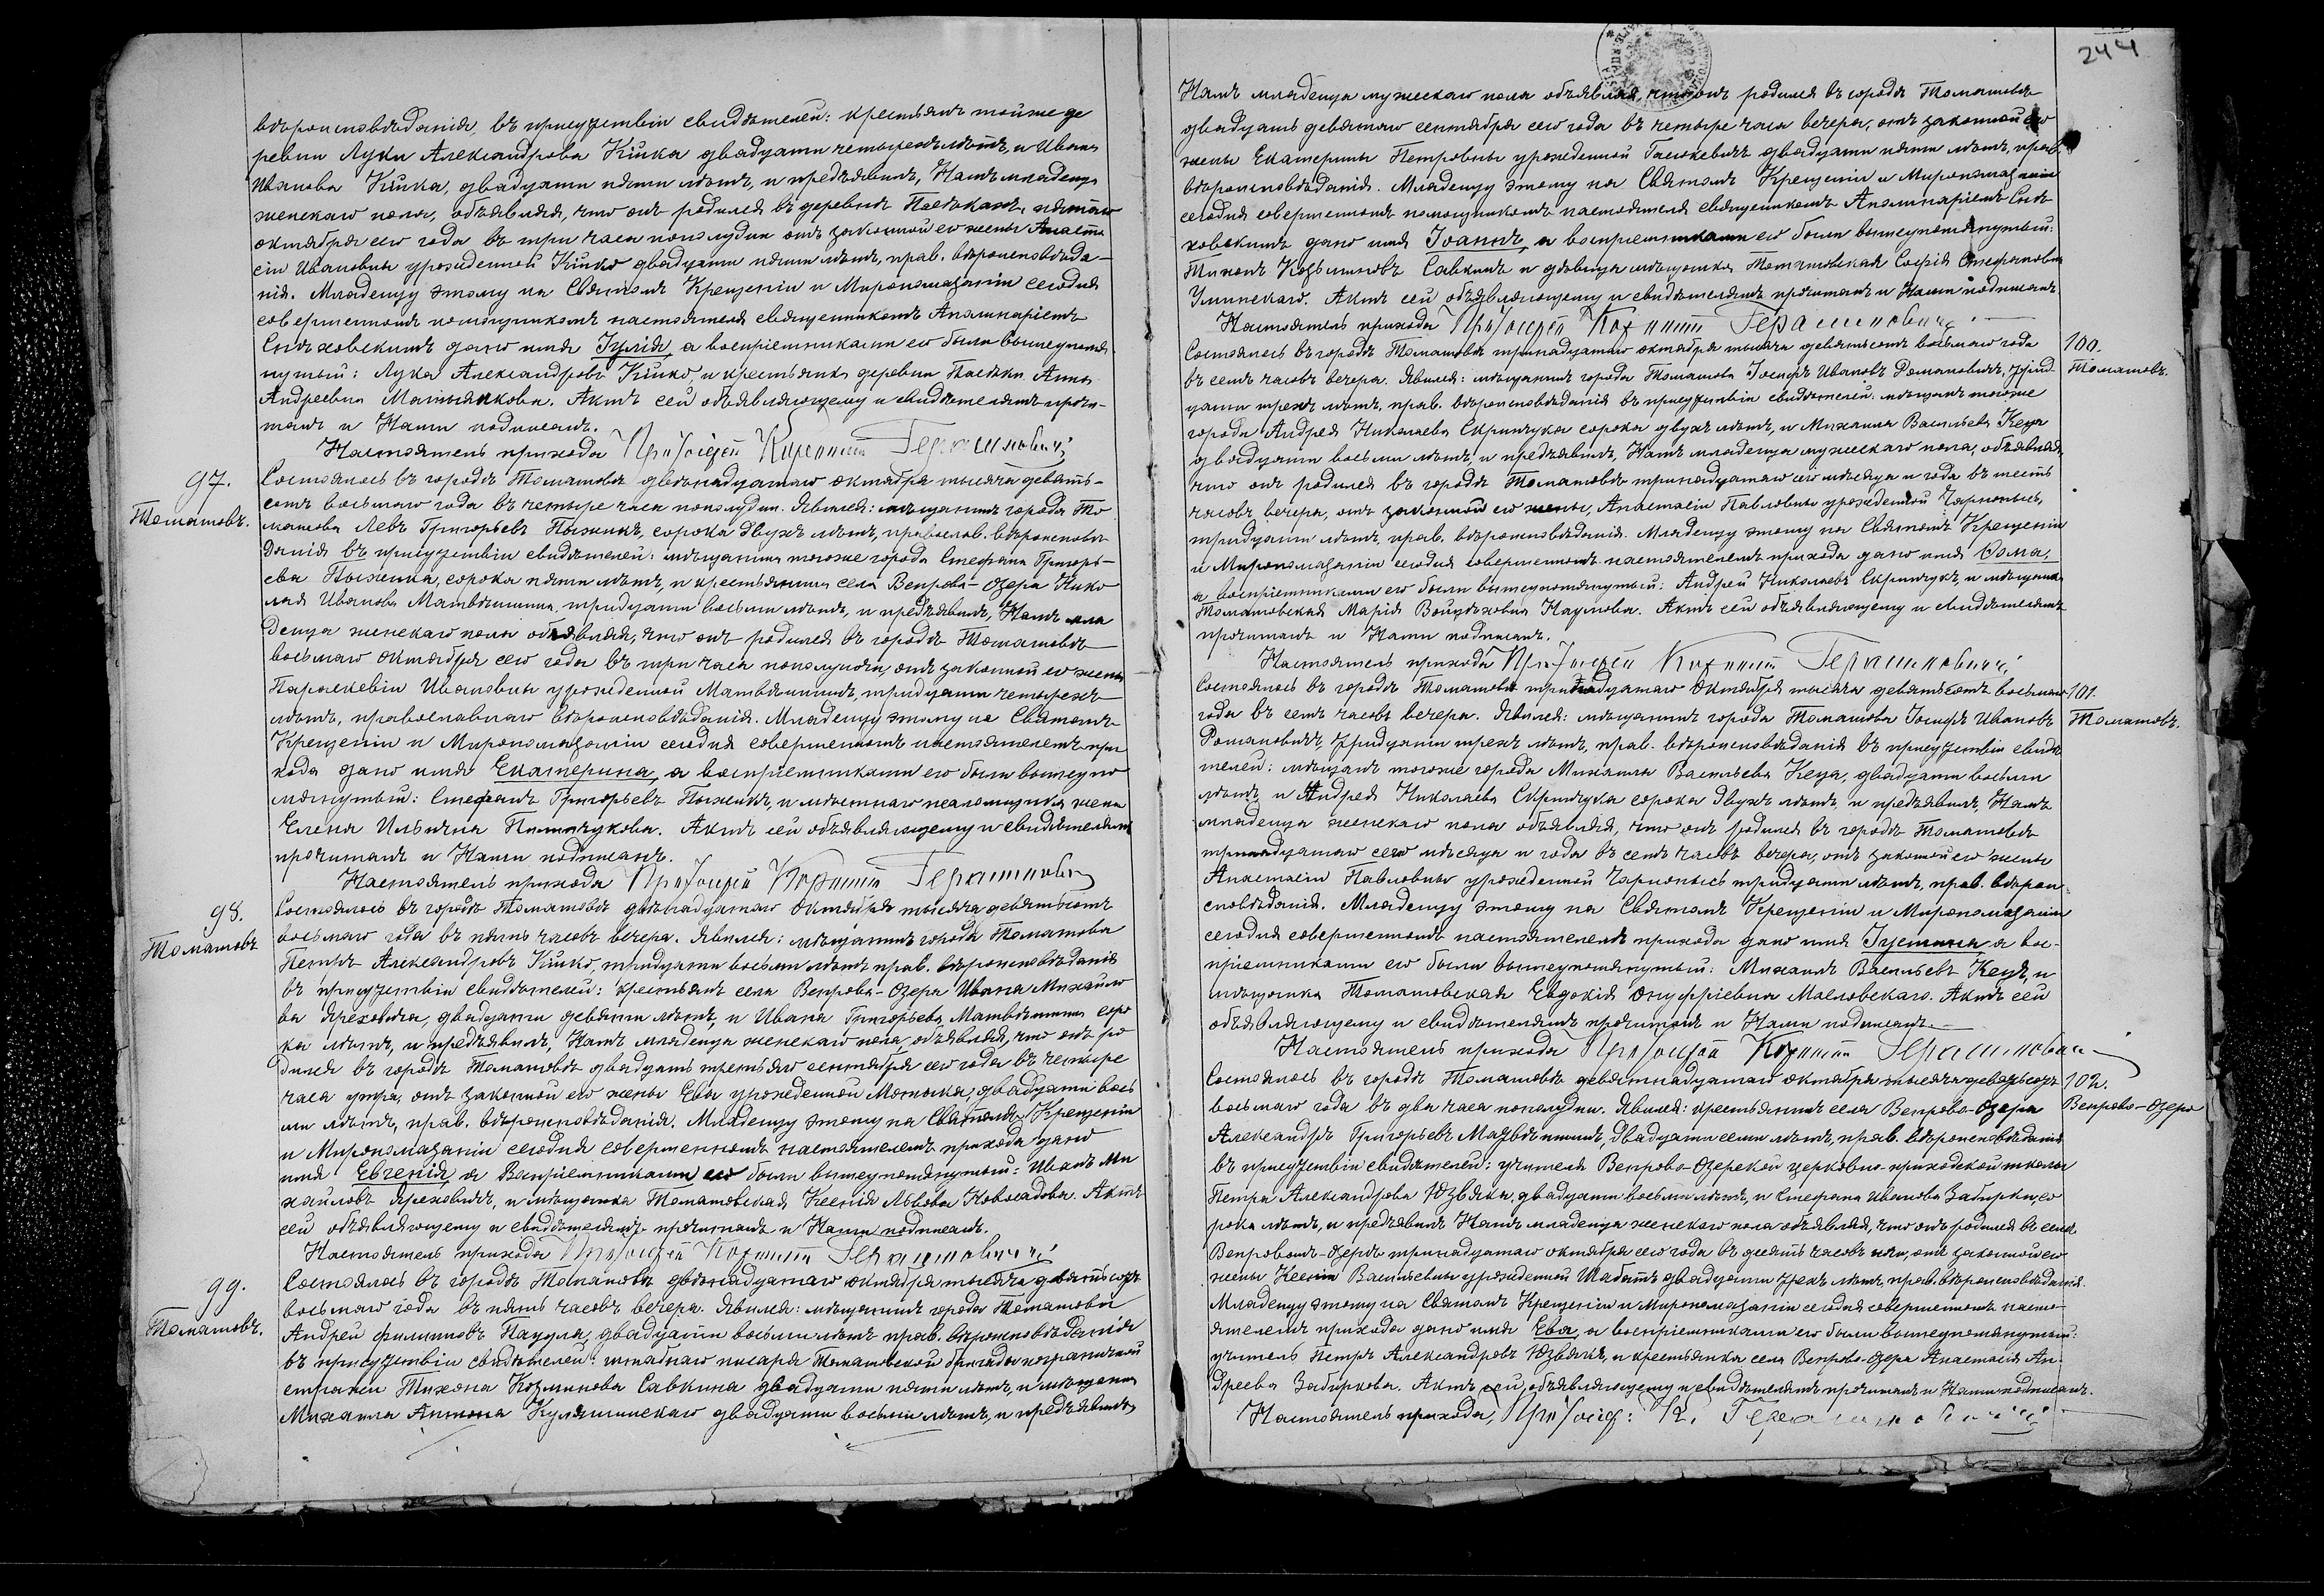 вѣроисповѣданія, въ присутствіи свидѣтелей: крестьянъ тойже де
ревни Луки Александрова Кицка двадцати четырехъ лѣтъ, и Ивана
Иванова Кицка, двадцати пяти лѣтъ, и предъявилъ, Намъ младенца
женскаго пола, объявляя, что онъ родился въ деревнѣ Пасѣкахъ, пятаго
октября сего года въ три часа пополудни отъ законной его жены Анаста
сіи Ивановны урожденной Кицко двадцати пяти лѣтъ, прав. вѣроисповѣда-
нія. Младенцу этому на Святомъ Крещеніи и Миропомазаніи сегодня
совершенномъ помощникомъ настоятеля священникомъ Аполинаріемъ
Снѣховскимъ дано имя Іулія, а воспріемниками его были вышеупомя
нутый: Лука Александровъ Кицко, и крестьянка деревни Пасѣки Анна
Андреевна Матыякова. Актъ сей объявляющему и свидѣтелямъ прочи-
танъ и Нами подписанъ.
Настоятель прихода Протоіерей Корнилій Герштанович
97.
Томашовъ.
Состоялось въ городѣ Томашовѣ двѣнадцатаго октября тысяча девять-
сотъ восьмаго года въ четыре часа пополудни. Явился: мѣщанинъ города То
машова Левъ Григорьевъ Пыжикъ, сорока двухъ лѣтъ, православ. вѣроисповѣ
данія въ присутствіи свидѣтелей: мѣщанина тогоже города Стефана Григорь-
ева Пыжика, сорока пяти лѣтъ, и крестьянина села Вепрова-Озера Нико
лая Иванова Матвѣишина, тридцати восьми лѣтъ, и предъявилъ, Намъ мла
денца женскаго пола объявляя, что онъ родился въ городѣ Томашовѣ
восьмаго октября сего года въ три часа пополуночи, отъ законной его жены
Параскевіи Ивановны урожденной Матвѣишинъ, тридцати четырехъ
лѣтъ, православнаго вѣроисповѣданія. Младенцу этому на Святомъ
Крещеніи и Миропомазаніи сегодня совершенномъ настоятелемъ при
хода дано имя Екатерина, а воспріемниками его были вышеупо
мянутый: Стефанъ Григорьевъ Пыжикъ, и мѣстнаго псаломщика жена
Елена Ильична Полищукова. Актъ сей объявляющему и свидѣтелямъ
прочитанъ и Нами подписанъ.
Настоятель прихода Протоіерей Корнилій
98.
Томашовъ
Состоялось въ городѣ Томашовѣ двѣнадцатаго октября тысяча девятьсотъ
восьмаго года въ пять часовъ вечера. Явился: мѣщанинъ города Томашова
Петръ Александровъ Кицко, тридцати восьми лѣтъ прав. вѣроисповѣданія
въ присутствіи свидѣтелей: крестьянъ села Вепрова-Озера Ивана Михайло
ва Яреховича, двадцати девяти лѣтъ, и Ивана Григорьева Матвѣишина соро
ка лѣтъ, и предъявилъ, Намъ младенца женскаго пола, объявляя, что онъ ро
дился въ городѣ Томашовѣ двадцать третьяго сентября сего года въ четыре
часа утра, отъ законной его жены Евы урожденной Мотыка, двадцати вось
ми лѣтъ, прав. вѣроисповѣданія. Младенцу этому на Святомъ Крещеніи
и Миропомазаніи сегодня совершенномъ настоятелемъ прихода дано
имя Евгенія, а Воспріемниками его были вышеупомянутый: Иванъ Ми
хайловъ Яреховичъ, и мѣщанка Томашовская Ксенія Львовна Ковосадова. Актъ
сей объявляющему и свидѣтелямъ прочитанъ и Нами подписанъ.
Настоятель прихода Протоіерей Корнилій
99.
Томашовъ.
Состоялось въ городѣ Томашовѣ двѣнадцатаго октября тысяча девятьсотъ
восьмаго года въ пять часовъ вечера. Явился: мѣщанинъ города Томашова
Андрей Филиповъ Пацула, двадцати восьми лѣтъ прав. вѣроисповѣданія
въ присутствіи свидѣтелей: штабнаго писаря Томашовской бригады пограничной
стражи Тихона Козьминова Савкина двадцати пяти лѣтъ, и мѣщанина
Михаила Антона Кулешинскаго двадцати восьми лѣтъ, и предъявилъ
244
Намъ младенца мужескаго пола объявляя, что онъ родился въ городѣ Томашовѣ
двадцать девятаго сентября сего года въ четыре часа вечера, отъ законной его
жены Екатерины Петровны урожденной Гасюкевичъ двадцати пяти лѣтъ, прав.
вѣроисповѣданія. Младенцу этому на Святомъ Крещеніи и Миропомазаніи
сегодня совершенномъ помощникомъ настоятеля священникомъ Аполинаріемъ Снѣ
ховскимъ дано имя Іоаннъ, а воспріемниками его были вышеупомянутый:
Тихонъ Козьминовъ Савкинъ и дѣвица мѣщанка Томашовская Софія Стефановна
Улинскаго. Актъ сей объявляющему и свидѣтелямъ прочитанъ и Нами подписанъ
Настоятель прихода Протоіерей Корнилій Герштанович
100.
Томашовъ.
Состоялось въ городѣ Томашовѣ тринадцатаго октября тысяча девятьсотъ восьмаго года
въ семь часовъ вечера. Явился: мѣщанинъ города Томашова Іосифъ Ивановъ Романовичъ, трид-
цати трехъ лѣтъ, прав. вѣроисповѣданія въ присутствіи свидѣтелей: мѣщанъ тогоже
города Андрея Николаева Скринчука сорока двухъ лѣтъ, и Михаила Васильева Кеца
двадцати восьми лѣтъ, и предъявилъ, Намъ младенца мужескаго пола, объявляя,
что онъ родился въ городѣ Томашовѣ тринадцатаго сего мѣсяца и года въ шесть
часовъ вечера, отъ законной его жены, Анастасіи Павловны урожденной Чарнопысь,
тридцати лѣтъ, прав. вѣроисповѣданія. Младенцу этому на Святомъ Крещеніи
и Миропомазаніи сегодня совершенномъ настоятелемъ прихода дано имя Ѳома,
а воспріемниками его были вышеупомянутый: Андрей Николаевъ Скринчукъ, и мѣщанка
Томашовская Марія Войцѣховна Наумова. Актъ сей объявляющему и свидѣтелямъ
прочитанъ и Нами подписанъ.
Настоятель прихода Протоіерей Корнилій Герштанович
101.
Томашовъ.
Состоялось въ городѣ Томашовѣ тринадцатаго октября тысяча девятьсотъ восьмаго
года въ семь часовъ вечера. Явился: мѣщанинъ города Томашова Іосифъ Ивановъ
Романовичъ, тридцати трехъ лѣтъ, прав. вѣроисповѣданія въ присутствіи свидѣ
телей: мѣщанъ тогоже города Михаила Васильева Кеца, двадцати восьми
лѣтъ, и Андрея Николаева Скринчука сорока двухъ лѣтъ, и предъявилъ, Намъ
младенца женскаго пола объявляя, что онъ родился въ городѣ Томашовѣ
тринадцатаго сего мѣсяца и года въ семь часовъ вечера, отъ законной его жены
Анастасіи Павловны урожденной Чарнопысь тридцати лѣтъ, прав. вѣрои-
сповѣданія. Младенцу этому на Святомъ Крещеніи и Миропомазаніи
сегодня совершенномъ настоятелемъ прихода дано имя Іустина, а вос-
пріемниками его были вышеупомянутый: Михаилъ Васильевъ Кецъ, и
мѣщанка Томашовская Евдокія Онуфріевна Масловскаго. Актъ сей
объявляющему и свидѣтелямъ прочитанъ и Нами подписанъ.
Настоятель прихода Протоіерей Корнилій Герштанович
102.
Вепрово-Озеро
Состоялось въ городѣ Томашовѣ девятнадцатаго октября тысяча девятьсотъ
восьмаго года въ два часа пополудни. Явился: крестьянинъ села Вепрово-Озера
Александръ Григорьевъ Матвѣишинъ, двадцати семи лѣтъ, прав. вѣроисповѣданія
въ присутствіи свидѣтелей: учителя Вепрово-Озерской церковно-приходской школы
Петра Александрова Юзвяка, двадцати восьми лѣтъ, и Стефана Иванова Забирки, со
рока лѣтъ, и предъявилъ Намъ младенца женскаго пола объявляя, что онъ родился въ селѣ
Вепровомъ-Озерѣ тринадцатаго октября сего года въ десять часовъ ночи, отъ законной его
жены Ксеніи Васильевны урожденной Шабатъ двадцати трехъ лѣтъ, прав. вѣроисповѣданія.
Младенцу этому на Святомъ Крещеніи и Миропомазаніи сегодня совершенномъ насто-
ятелемъ прихода дано имя Ева, а воспріемниками его были вышеупомянутый:
учитель Петръ Александровъ Юзвякъ, и крестьянка села Вепрово-Озера Анастасія Ан-
дреева Забиркова. Актъ сей, объявляющему и свидѣтелямъ прочитанъ и Нами подписанъ.
Настоятель прихода, Протоіер: К.